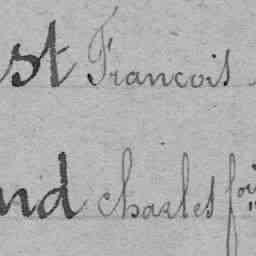 st François
nd charles